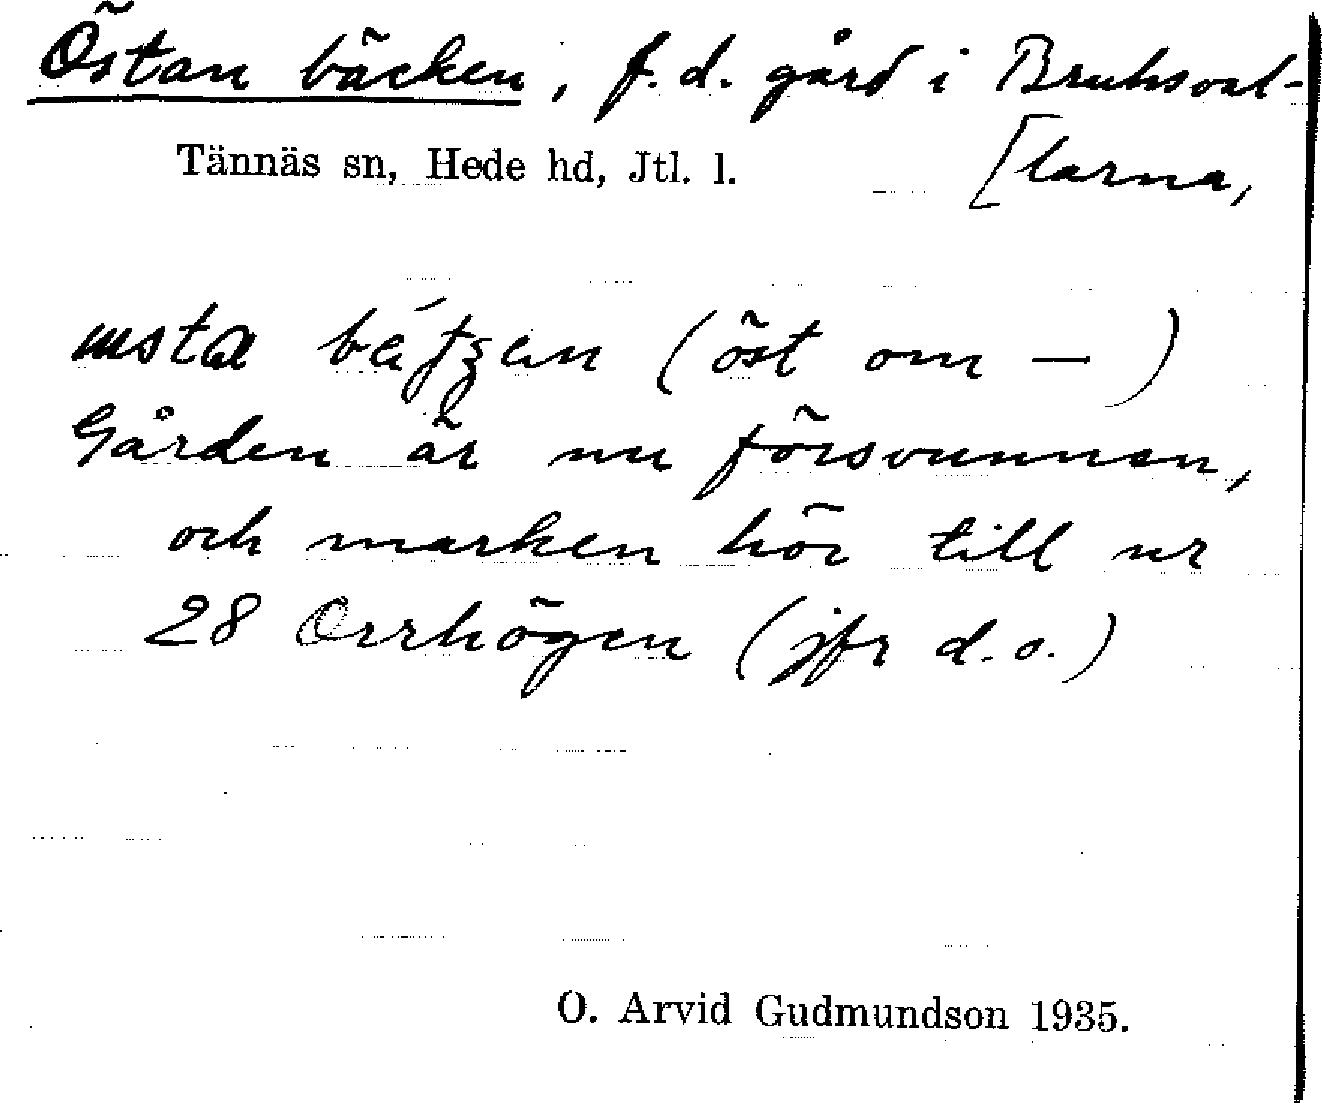 Östan bäcken, f. d. gård i Bruksval-
Tännäs sn, Hede hd, Jtl. l. [larna,
bätʒen (öst om — )
Gården är nu försvunnen,
och marken hör till nr
28 Orrhögen (jfr d. o.)
O. Arvid Gudmundson 1935.